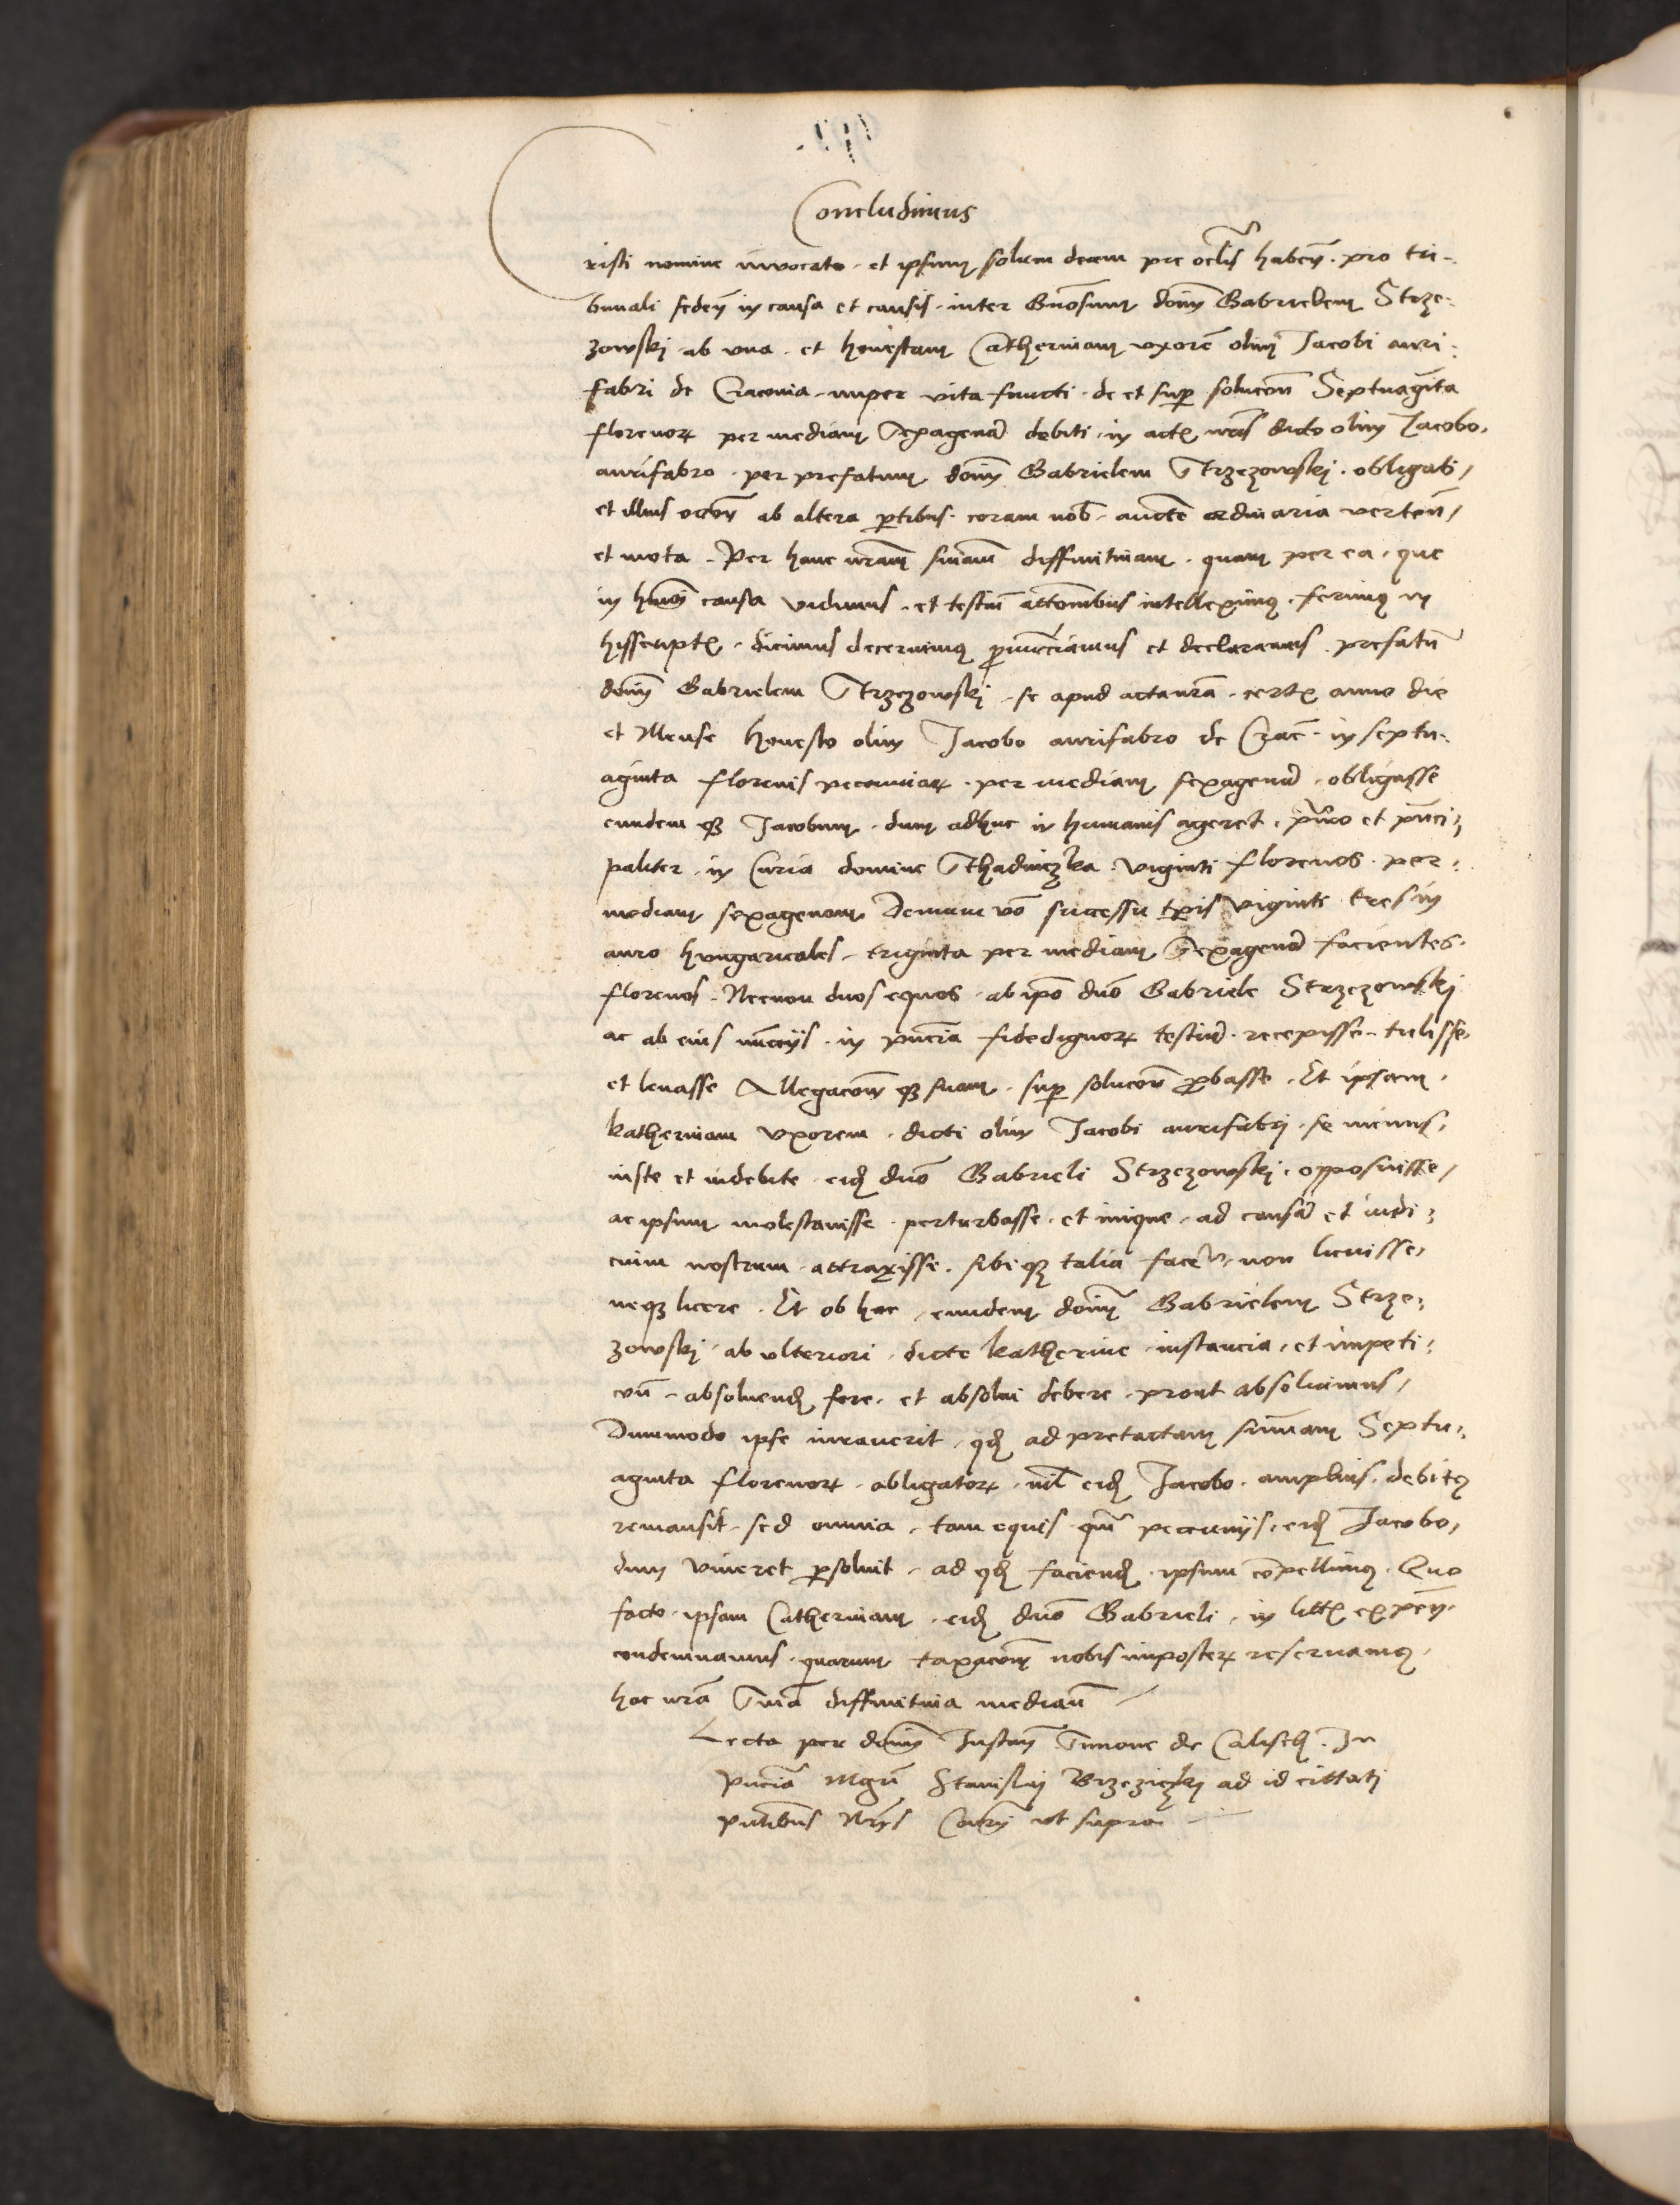 Concludimus
risti nomine invocato et ipsum solum deum pre oclis haben. pro tri-
bunali seden in causa et causis inter Gnosum donm Gabrielem Strze-
zowskj ab vna et honestam Catherinam vxore olim Jacobi auri-
fabri de Cracovia nuper vita functi de et sup solucon Septuaginta
florenor per mediam Sexagena debiti in actis nris dicto olim Jacobo
aurifabro per prefatum donm Gabrielem Strzezowskj obligati
et illius occon ab altera ptibus coram nob aucte ordinaria verten
et mota Per hanc nram sniam diffinitiuam quam per ea que
in hmoi causa vidimus et testiu attonibus intelleximus ferimus in
hisscriptis dicimus decernimus pnuncciamus et declaramus prefatu
donm Gabrielem Strzezowskj se apud acta nra certis anno die
et Mense honesto olim Jacobo aurifabro de Crac in septu-
aginta florenis pecuniar per mediam sexagena obligasse
eundem q Jacobum dum adhuc in humanis ageret pmo et pnci
paliter in Curia domine Sthadniczka viginti florenos per
mediam sexagenam Demum vo successu tpis viginti tres in
auro hungaricales triginta per mediam Sexagena facientes
florenos Necnon duos equos ab ipo dno Gabriele Strzezowskj
ac ab eius nuccijs in pncia fidedignor testiu recepisse tulisse
et leuasse Allegacon q suam sup solucon pbasse Et ipsam
katherinam vxorem dicti olim Jacobi aurifabrj se minus
iuste et indebite eid dno Gabrieli Strzezowskj opposuisse
ac ipsum molestauisse perturbasse et inique ad causa et iudi
cium nostrum attraxisse sibi q talia face non licuisse
neq licere Et ob hoc eundem donm Gabrielem Strze
zowskj ab vlteriori dicte katherine instancia et impeti
con absoluend fore et absolui debere prout absoluimus
Dummodo ipse iurauerit qd ad pretactam summam Septu
aginta florenor obligator nil eid Jacobo amplius debitor
remansit sed omnia tam equis qm peccunijs eid Jacobo
dum viueret psoluit ad qd faciend ipsum copellimus Quo
facto ipsam Catherinam eid dno Gabrieli in littis expen
condemnamus quarum taxacon nobis imposter reseruamus
hac nra Snia diffinitiua median
Lecta per donm Justum Simone de Calisch In
pncia Mgri Stanislaj Brzeziczkj ad id cittati
pntibus Nrijs ut supra